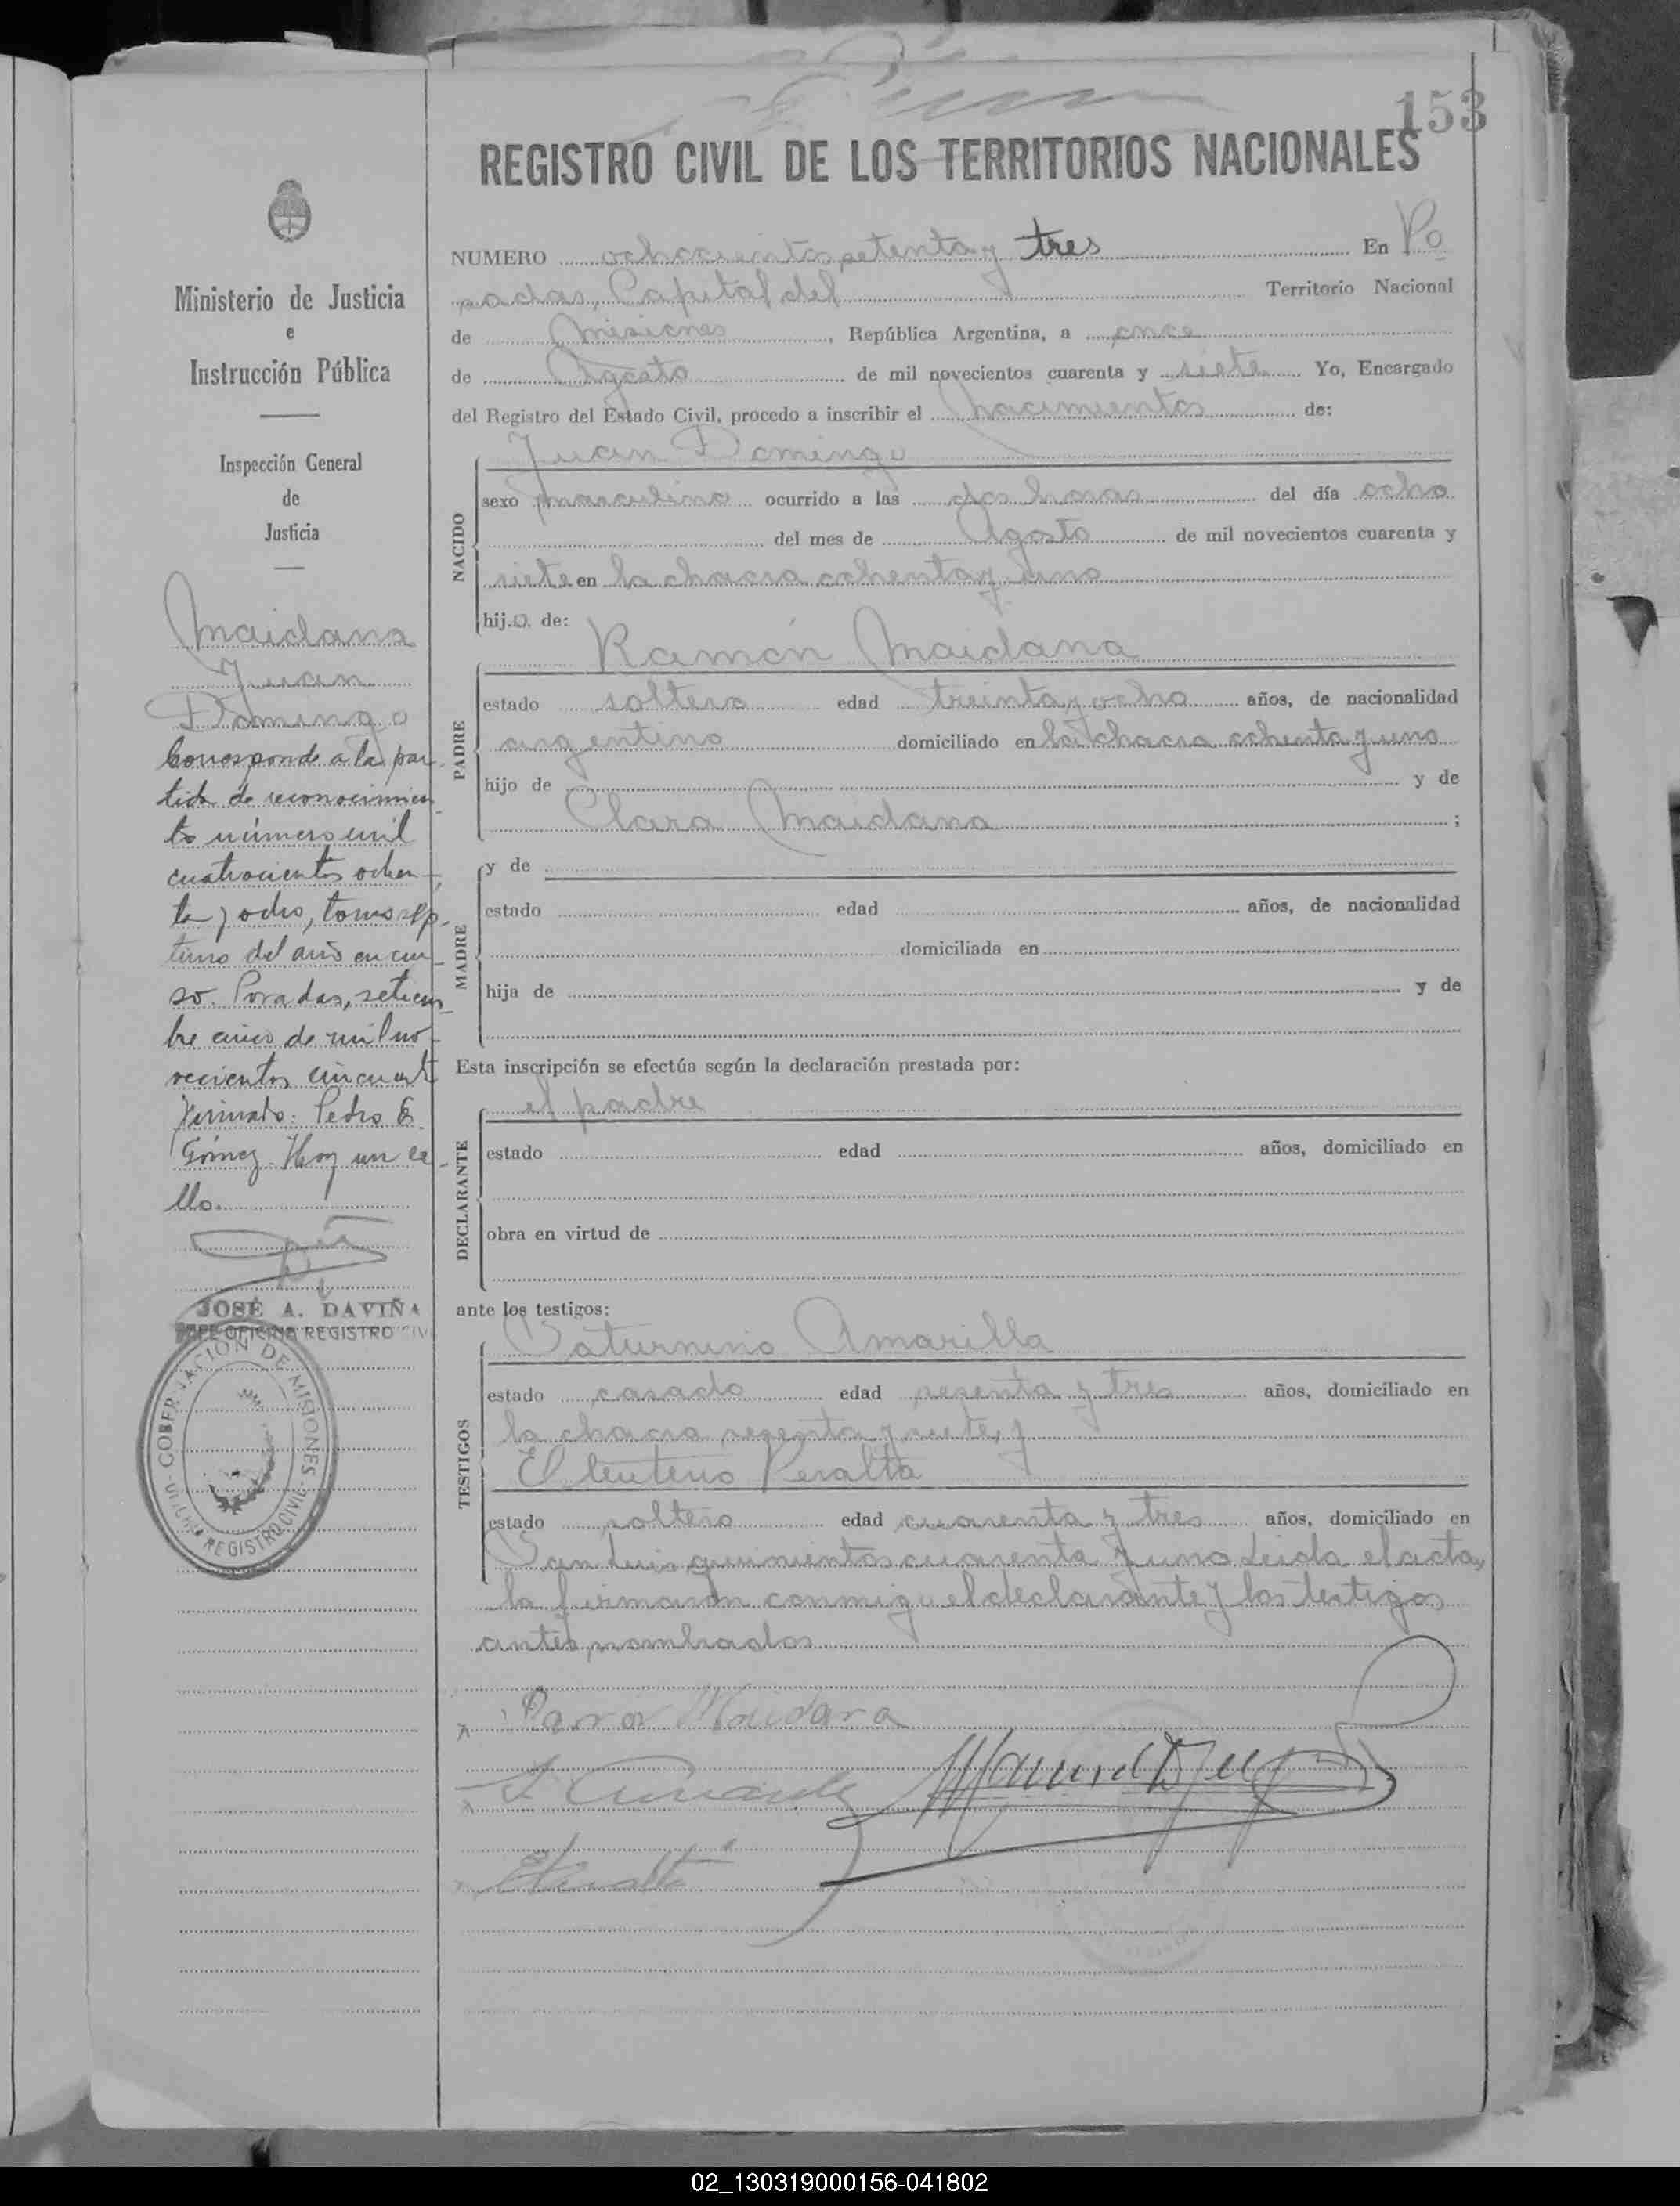 153
REGISTRO CIVIL DE LOS TERRITORIOS NACIONALES
NUMERO ochocientos setenta y tres En Po
sadas, Capital del Territorio Nacional
de Misiones, República Argentina, a once
de Agosto de mil novecientos cuarenta y siete Yo, Encargado
del Registro del Estado Civil, procedo a inscribir el nacimiento de:
NACIDO
Juan Domingo
sexo masculino ocurrido a las dos horas del día ocho
del mes de Agosto de mil novecientos cuarenta y
siete en la chacra ochenta y uno
hijo de:
PADRE
Ramón Maidana
estado soltero edad treinta y ocho años, de nacionalidad
argentino domiciliado en la chacra ochenta y uno
hijo de y de
Clara Maidana ;
MADRE
y de
estado edad años, de nacionalidad
domiciliada en
hija de y de
Esta inscripción se efectúa según la declaración prestada por:
DECLARANTE
el padre
estado edad años, domiciliado en
obra en virtud de
ante los testigos:
TESTIGOS
Saturnino Amarilla
estado casado edad sesenta y tres años, domiciliado en
la chacra sesenta y siete, y
Eleuterio Peralta
estado soltero edad cuarenta y tres años, domiciliado en
San Luis quinientos cuarenta y uno Leida el acta,
la firmaron conmigo el declarante y los testigos
antes nombrados
Ramon Maidana
Ministerio de Justicia
e
Instrucción Pública
Inspección General
de
Justicia
Maidana
Juan
Domingo
Corresponde a la par-
tida de reconocimien-
to número mil
cuatrocientos ochen-
ta y ocho, tomo sép-
timo del año en cur-
so. Posadas, setiem-
bre cinco de mil no-
vecientos cincuenta
Firmado: Pedro E.
Gómez. Hay un se-
llo.
JOSÉ A. DAVIÑA
JEFE OFICINA REGISTRO CIVIL
GOBERNACION DE MISIONES
OFICINA REGISTRO CIVIL
02_130319000156-041802